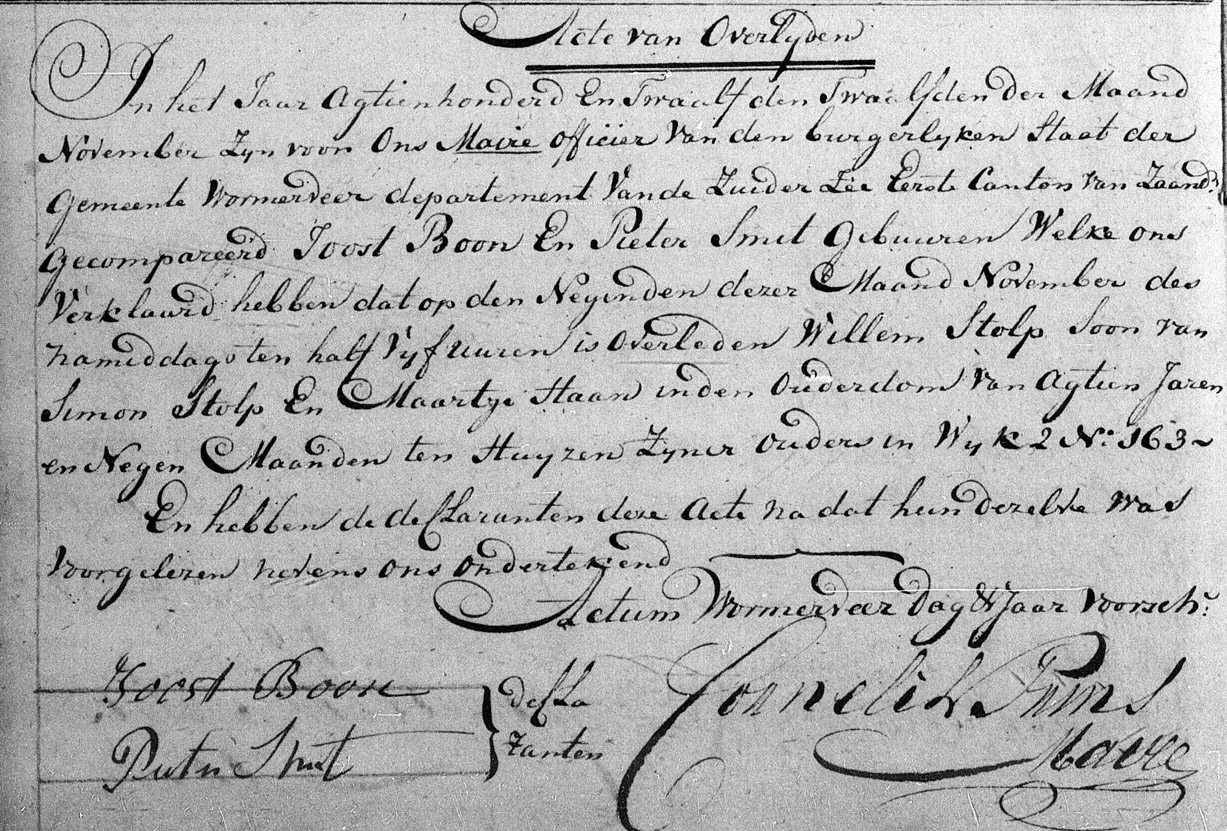 Acte van Overlyden
In het Jaar Agtienhonderd En Twaalf den Twaalfden der Maand
November Zyn voor Ons Maire officier Van den burgerlyken Staat der
Gemeente Wormerveer departement Vande Zuider Zee Eerste Canton van Zaand:
Gecompareerd Joost Boon En Pieter Smit Gebuuren Welke ons
Verklaard hebben dat op den Neginden dezer Maand November des
namiddags ten half Vyf uuren is Overleden Willem Stolp Soon van
Simon Stolp En Maartje Haan inden Ouderdom Van Agtien Jaren
en Negen Maanden ten Huyzen Zyner Ouders in Wyk 2 N: 163~
En hebben de declaranten deze Acte na dat hun dezelve was
Voorgelezen nevens ons ondertekend
Actum Wormerveer Dag & Jaar Voorsch:
Joost Boon
Pieter Smit
decla
ranten
Cornelis
Maire